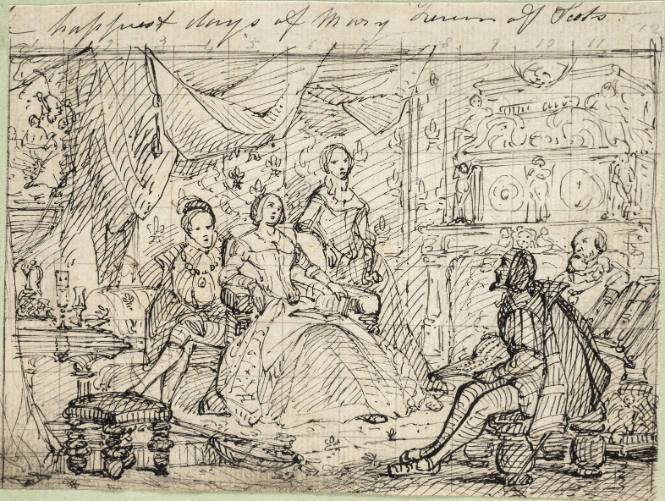 happiest days of Mary Queen of Scots.
1 2 3 4 5 6 7 8 9 10 11 12